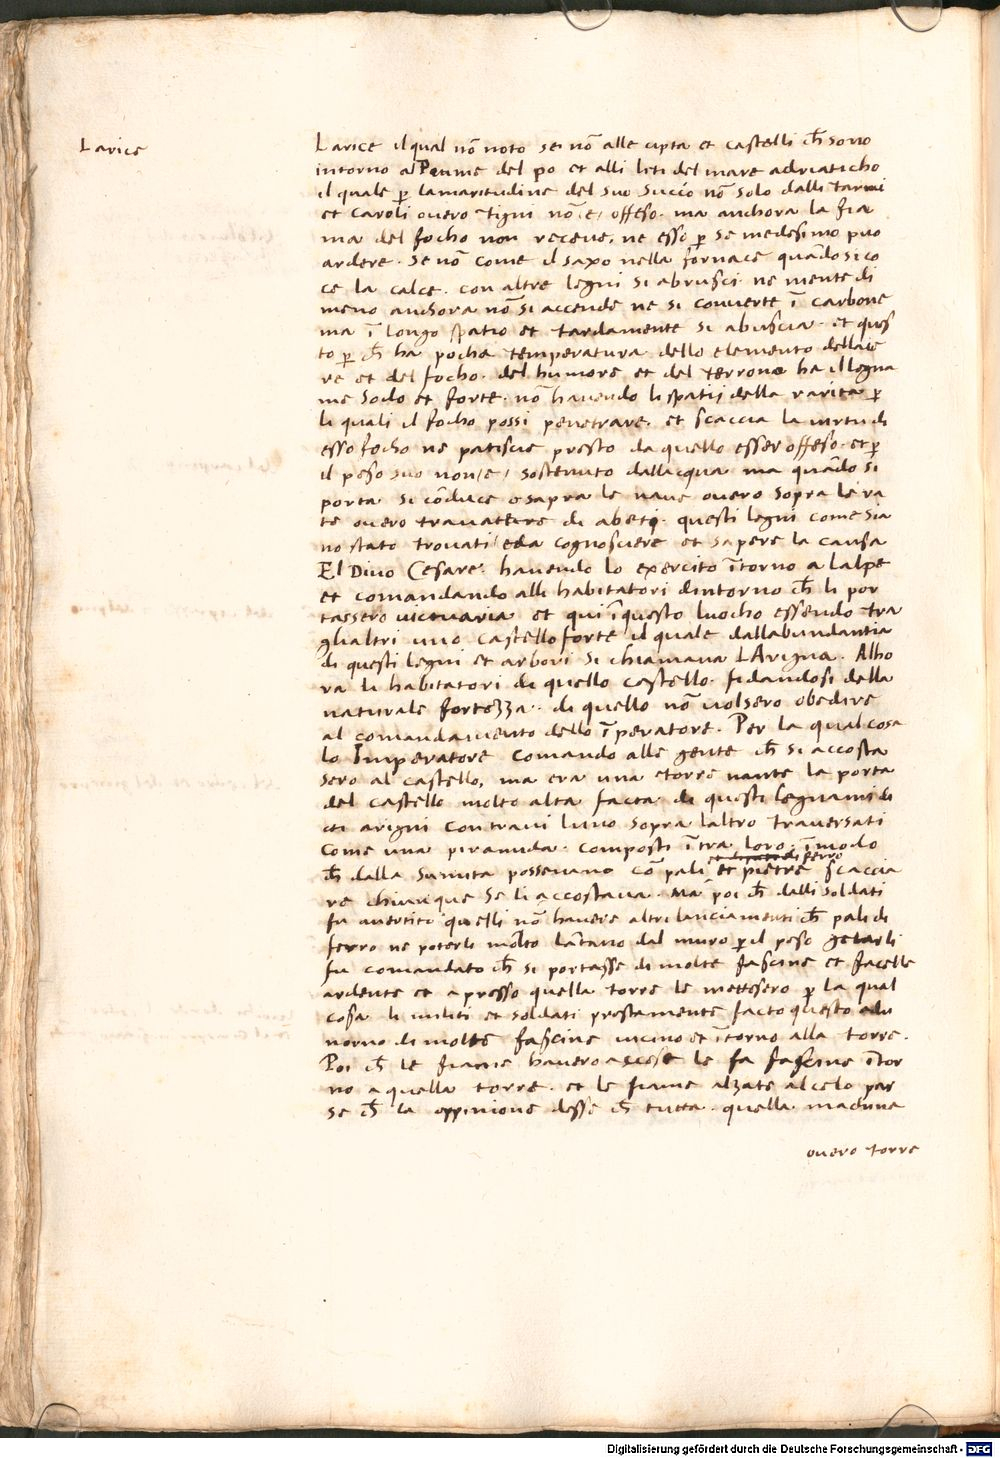 Larice
Larice il qual nõ noto se nõ alle cipta et castelli ch̃ sono
intorno al fiume del po et alli liti del mare adriaticho
il quale p̱ lamaritudine del suo succo nõ solo dalli tarmi
et caroli overo tigni nõ /e/ offeso. ma anchora la fia
ma del focho non receve. ne esso p̱ se medesimo puo
ardere. Se nõ come il saxo nella fornace quãdo si co
ce la calce. con altre legni si abrusci. ne mente di
meno anchora nõ si accende ne si converte ĩ carbone
ma ĩ longo spatio et tardamente si abuscia. et ques
to p̱ ch̃ ha pocha temperatura dello elemento dellae
re et del focho. del humore et del terrono ha il legna
me sodo et forte. nõ havendo li spatii della rarita p̱
li quali il focho possi penetrare. et scaccia la virtu di
esso focho ne patiscie presto da quello esser offeso. et p̱
il peso suo non /e/ sostenuto dallacqua ma quãdo si
porta si cõduce sopra le nave overo sopra le ra
te overo travature di abeti. questi legni come sia
no stato trovati /e/ da cognoscere et sapere la causa
El Divo Cesare. havendo lo exercito ĩtorno a lalpe
et comandando alli habitatori dintorno ch̃ li por
tassero victuaria et qui ĩ questo luocho essendo tra
glialtri uno castello forte il quale dallabundantia
di questi legni et arbori si chiamava LArigna. Alho
ra li habitatori di quello castello. fidandosi della
naturale fortezza. di quello nõ volsero obedire
al comandamento dello ĩperatore. Per la qual cosa
lo Imperatore comando alle gente ch̃ si accosta
sero al castello, ma era una torre nante la porta
del castello molto alta facta di questi legnami di
cti arigni con travi luno sopra laltro traversati
come una piramida. composti ĩtra loro. ĩ modo
di ferro
ch̃ dalla sumita possevano cõ pali et pietre scaccia
re chiunque se li accostava. Ma poi ch̃ dalli soldati
fu avertito quelli nõ havere altri lanciamenti ch̃ pali di
ferro ne poterli molto lãtano dal muro p̱ il peso getarli
fu comandato ch̃ si portasse di molte fascine et facelle
ardente et apresso quella torre le mettesero p̱ la qual
cosa li militi et soldati prestamente facto questo adu
norno di molte fascine vicino et ĩtorno alla torre.
Poi ch̃ le fiame havero accese le fascine ĩtor
no a quella torre. et le fiame alzate al celo par
se ch̃ la oppinione desse ch̃ tutta. quella. machina
overo torre
Digitalisierung gefördert durch die Deutsche Forschungsgemeinschaft - DFG